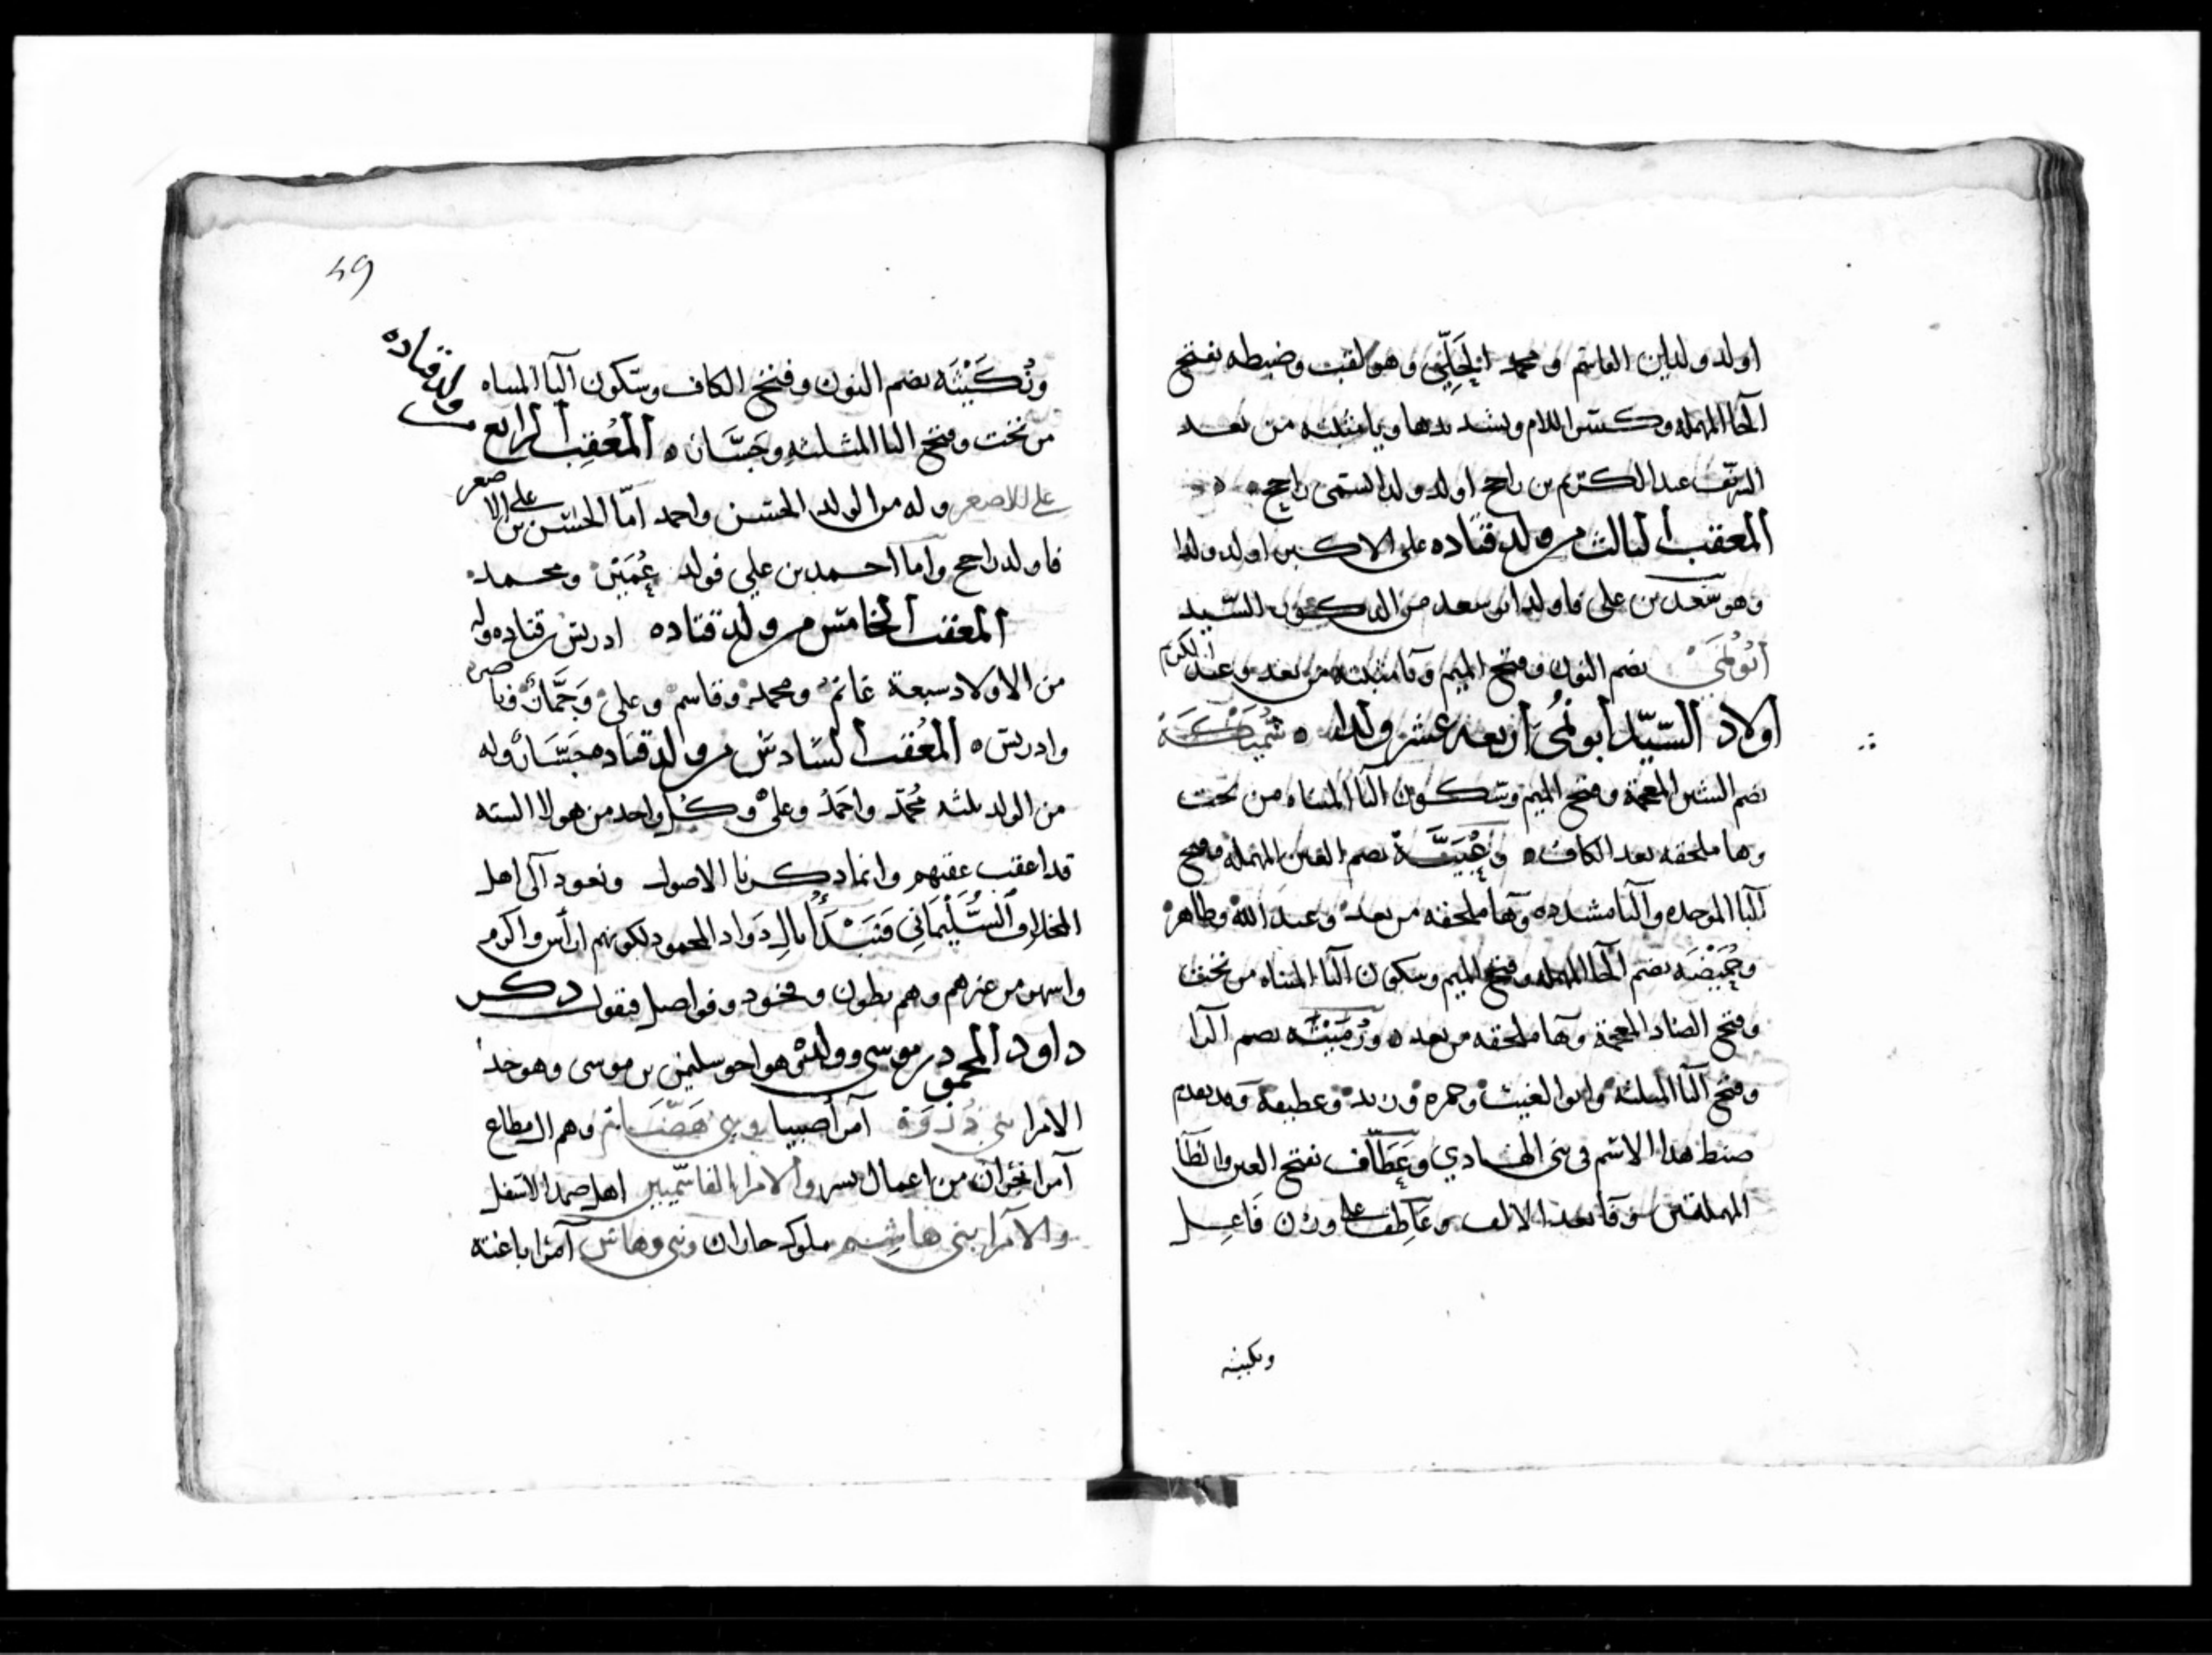 اولد ولدين القاسم ومحمد الحِلِّي وهو لقب وضبطه بفتح
الحا المهمله وكسر اللام وتشديدها ويا مثبته من بعد
الشريف عبد الكريم بن راجح اولد ولدا اسمى راجح
المعقب الثالث من ولد قتاده علي الاكبر اولد ولدا
وهو سعد بن علي فاولد ابو سعد من الذكور السيد
ابونُمَيّ بضم النون وفتح الميم ويا مثبته من بعد وعبد الكريم
اولاد السيّد أبو نُمَي أربعه عشر ولدا ه شُمَيْكَة
بضم الشين المعجمة وفتح الميم وسكون اليا المثناه من تحت
وها ملحقه بعد الكاف ه وعُبَيَّة بضم العين المهمله وفتح
البا الموحده واليا مشدده وها ملحقه من بعد وعبد الله وطاهر
وحُمَيْضَه بضم الحا المهمله وفتح الميم وسكون اليا المثناه من تحت
وفتح الضاد المعجمة وها ملحقه من بعد ه ورُمَيْثَه بضم الرا
وفتح الثا المثلثه وابو الغيث وحمزه وزيد وعطيفة وقد تقدم
ضبط هذا الاسم في بني الهادي وعَطَّاف بفتح العين والطا
المهملتين وفا بعد الالف وعَاطِف على وزن فَاعِل
ونكيثه
49
ونُكَيْثَه بضم النون وفتح الكاف وسكون اليا المثناه
من تحت وفتح الثا المثلثه وحَسَّان ه المُعْقِب الرابع
من ولد قتاده
علي الاصغر وله من الولد الحسن واحمد امّا الحسن بن علي الاصغر
فاولد راجح واما احمد بن علي فولد عُمَيْر ومحمد
المعقب الخامس من ولد قتاده ادريس بن قتاده وله
من الاولاد سبعة غانم ومحمد وقاسم وعلي وَجَمَّاز
وادريس ه المُعْقب السادس من ولد قتاده حسَّان وله
من الولد ثلثه مُحَمّد واحمَدُ وعليّ وكُل واحد من هولا السته
قد اعقب عقبهم وانما ذكرنا الاصول ونعود الى اهل
المخلاف السُّلَيْمَانِي فَنَبْدَأُ بال دَاود المحمود لكونهم ارأس واكرم
واشهر من غيرهم وهم بطون وفخود وفواصل فنقول ذكر
داود المحمود بن موسى وولده هو اخو سليمن بن موسى وهو جد
الامرا بني ذُرْوَة امرا صبيا وبني وهم ال مطاع
امرا نجران من اعمال بيش والامرا القاسميين اهل صمد الاسفل
والامرا بني هاشم ملوك جازان وبني وهاش امرا باغته